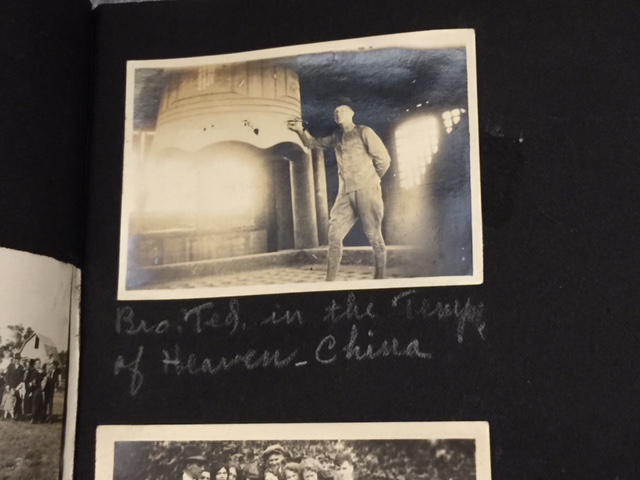 Bro. Ted. in the Temple
of Heaven - China